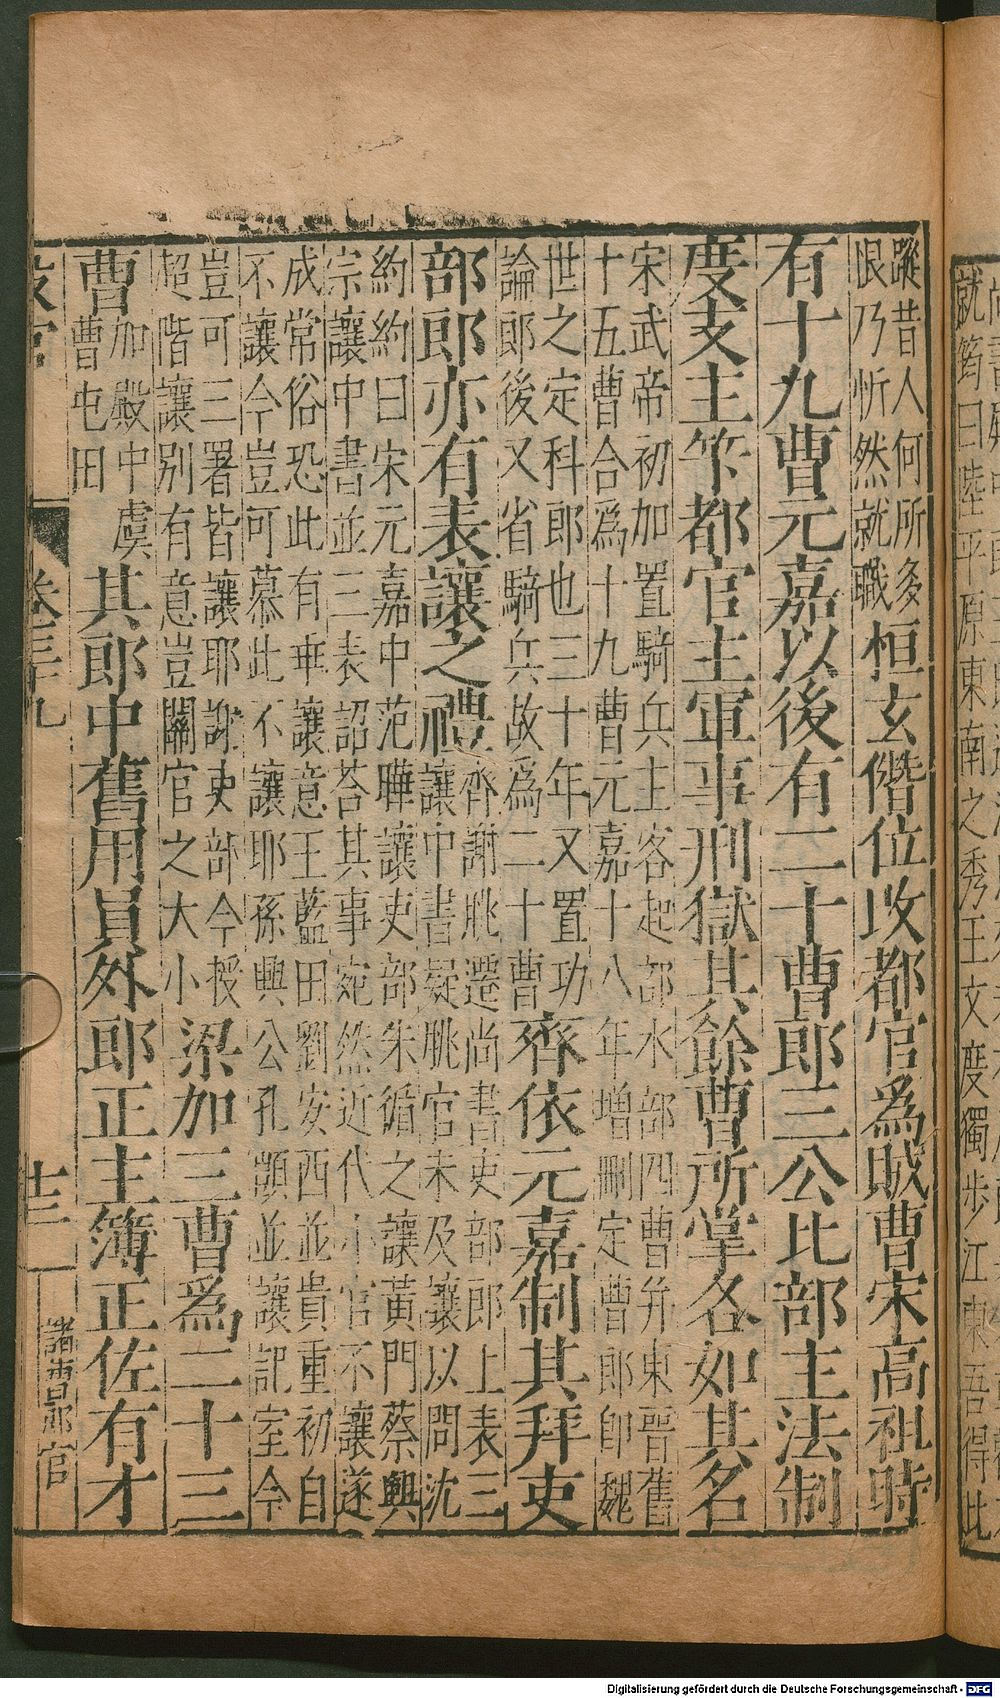 就筠曰陸平原東南之秀王文度獨步江東吾得此
蹤昔人何所多
恨乃忻然就職
恒玄僭位改都官爲賊曹宋高祖時
有十九曹元嘉以後有二十曹郎三公比部主法制
度支主筭都官主軍事刑獄其餘曹所掌各如其名
宋武帝初加置騎兵主客起部水部四曹并東晉舊
十五曹合爲十九曹元嘉十八年增刪定曹郎即魏
世之定科郎也三十年又置功
論郎後又省騎兵故爲二十曹
齊依元嘉制其拜吏
部郎亦有表讓之禮
齊謝朓遷尚書吏部郎上表三
讓中書疑朓官未及讓以問沈
約約曰宋元嘉中范曄讓吏部朱循之讓黃門蔡興
宗讓中書並三表詔荅其事宛然近代小官不讓遂
成常俗恐此有乖讓意王藍田劉安西並貴重初自
不讓今豈可慕此不讓耶孫興公孔顗並讓記室今
豈可三署皆讓耶謝吏部今授
超階讓別有意豈關官之大小
梁加三曹爲二十三
曹
加殿中虞
曹屯田
其郎中舊用員外郎正主簿正佐有才
十三
諸曹郎官
Digitalisierung gefördert durch die Deutsche Forschungsgemeinschaft - DFG